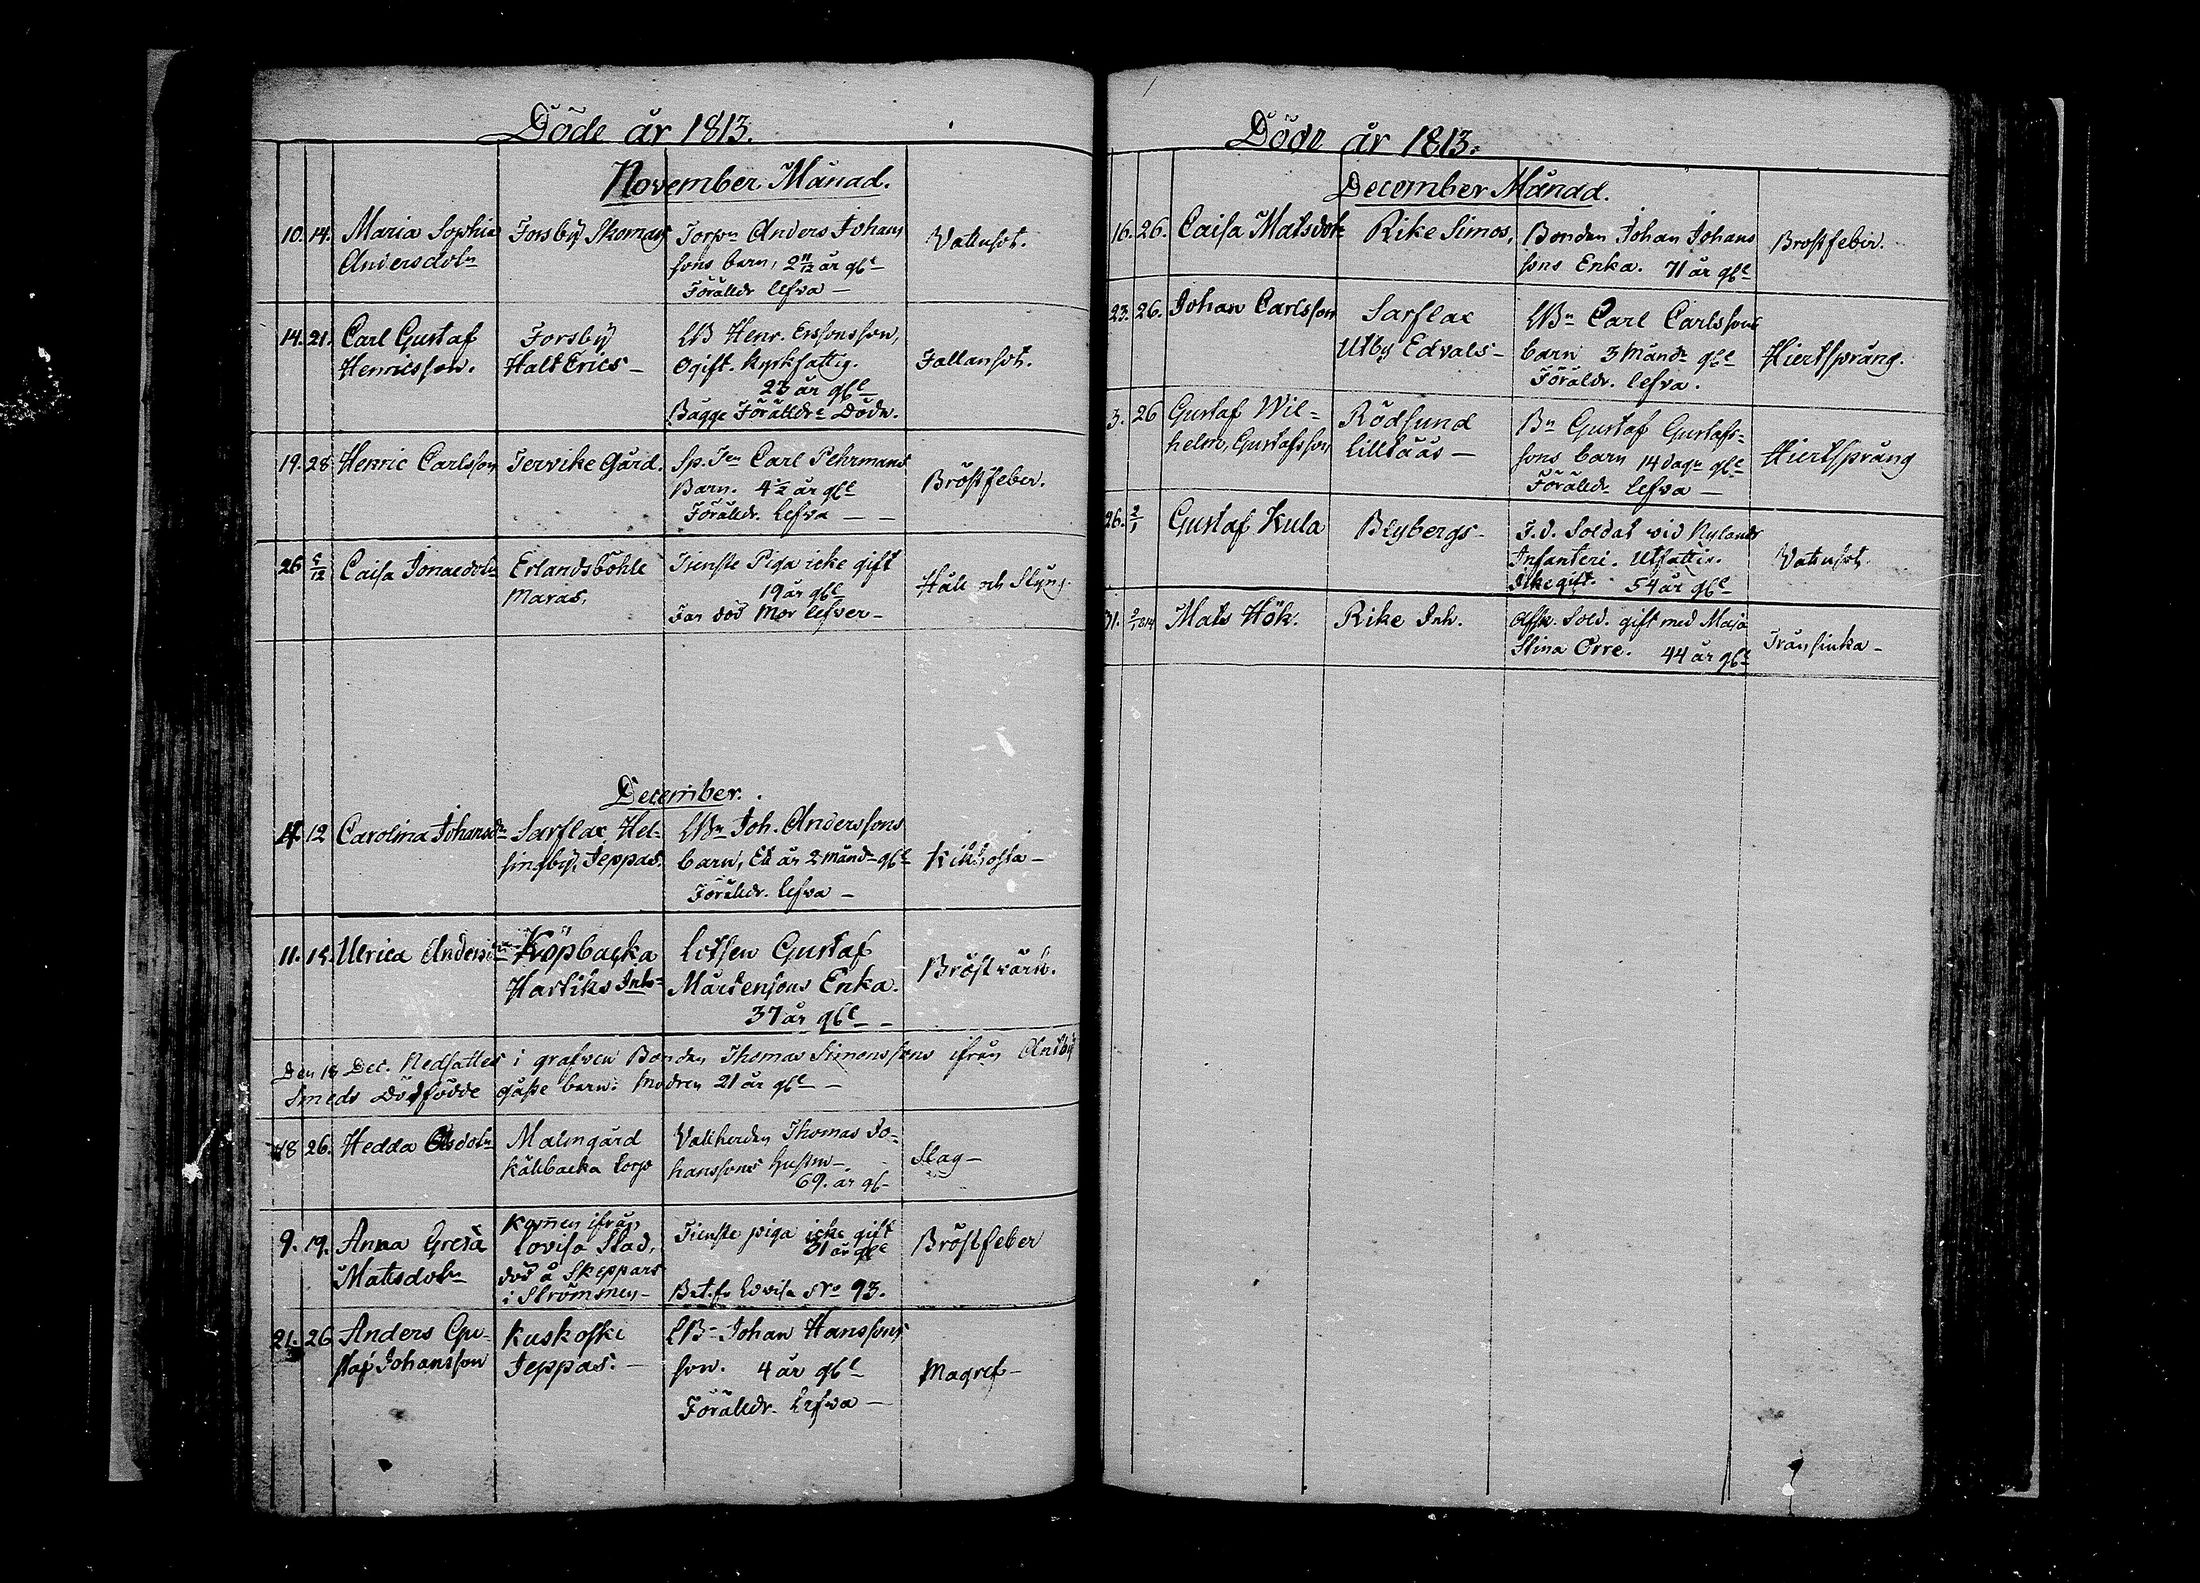 Döde år 1813.
November Månad.
10. 14. Maria Sophia Forsby Skomars Torpn Anders Johans Vattusot.
Andersdotr sons barn, 2 11/12 år gl
Föräldr lefva —
14. 21. Carl Gustaf Forsby LB Henr. Erssonsson,
Henricsson. Halt Erics — Ogift. Kyrkfattig. Fallansot.
23 år gl
Bägge Föräldre Döde.
19. 28. Henric Carlsson Tervike Gård. Sp. Tn Carl Pehrmans
Barn. 4 1/2 år gl Bröstfeber.
Föräldr. Lefva — —
26 5/12 Caisa Jonaedotr Erlandsböhle Tienste Piga icke gift Håll och Styng.
Maras. 19 år gl
Far död Mor lefver —
December.
4. 12 Carolina Johansdr Sarflax Hel- LBn Joh. Anderssons
singby, Jeppas. barn, Ett år 2 månd gl Kikhosta —
Föräldr. lefva —
11. 15. Ulrica Andersdr Köpbacka Lotsen Gustaf
Hartiks Inh- Mårtensons Enka. Bröstvärk.
37 år gl —
Den 18 Dec. Nedsattes i grafven Bonden Thomas Simonssons ifrån Andby
Smeds Dödfödde gåsse barn. Modren 21 år gl —
18 26. Hedda dotr Malmgård Vallherden Thomas Jo-
Källbacka torp hanssons hustru — Slag —
69. år gl
Komen ifrån
9. 19. Anna Greta Lovisa Stad, Tienste piga icke gift Bröstfeber
31 år gl
Matsdotr död å Skeppars
i Strömmen — Bet. fr Lovisa No 93.
21. 26 Anders Gu- Kuskoski LBn Johan Hanssons
staf Johansson Jeppas. — son. 4 år gl Magref —
Föräldr. Lefva —
Döde år 1813.
December Månad.
16. 26. Caisa Matsdotr Rike Simos, Bonden Johan Johans Bröstfeber.
sons Enka. 71 år gl
23. 26. Johan Carlsson Sarflax LBn Carl Carlssons
Utby Edvals — barn 3 måndr gl Hiertsprång.
Föräldr. lefva.
3. 26 Gustaf Wil- Rödsund Bn Gustaf Gustafs-
helm, Gustafsson Lilltääs — sons barn 14 dagr gl Hiertsprång
Föräldr lefva —
26. 2/1 Gustaf Kula Blybergs — F. d. Soldat vid Nylands
Infanteri. Utfattig. Vattusot.
Icke gift. 54 år gl
31. 2/1 814 Mats Hök. Rike Inh. Afsk. Sold. gift med Maja
Stina Orre. 44 år gl Trånsiuka —